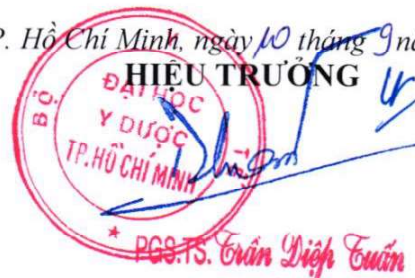 P. Hồ Chí Minh, ngày 10 tháng 9 nă
HIỆU TRƯỞNG
BỘ
ĐẠI HỌC
Y DƯỢC
TP.HỒ CHÍ MINH
PGS.TS. Trần Diệp Tuấn